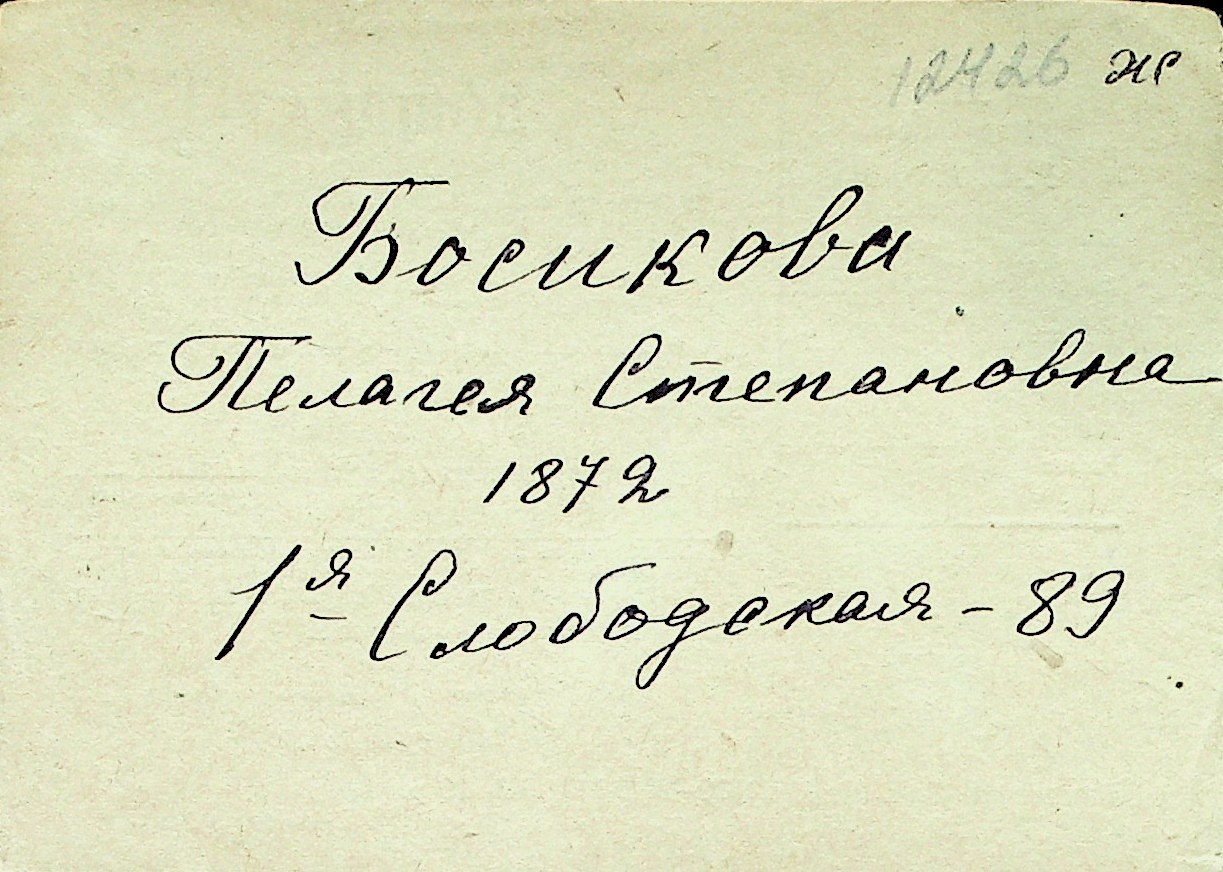 12426 ж
Босикова
Пелагея Степановна
1872
1я Слободская - 89